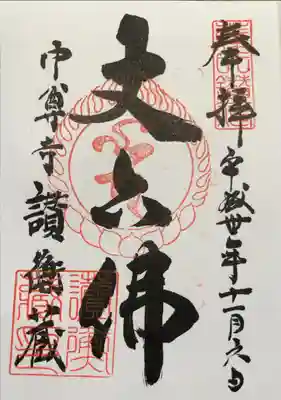 奉拝 平成卅年十一月六日
丈六佛
中尊寺 讃衡蔵